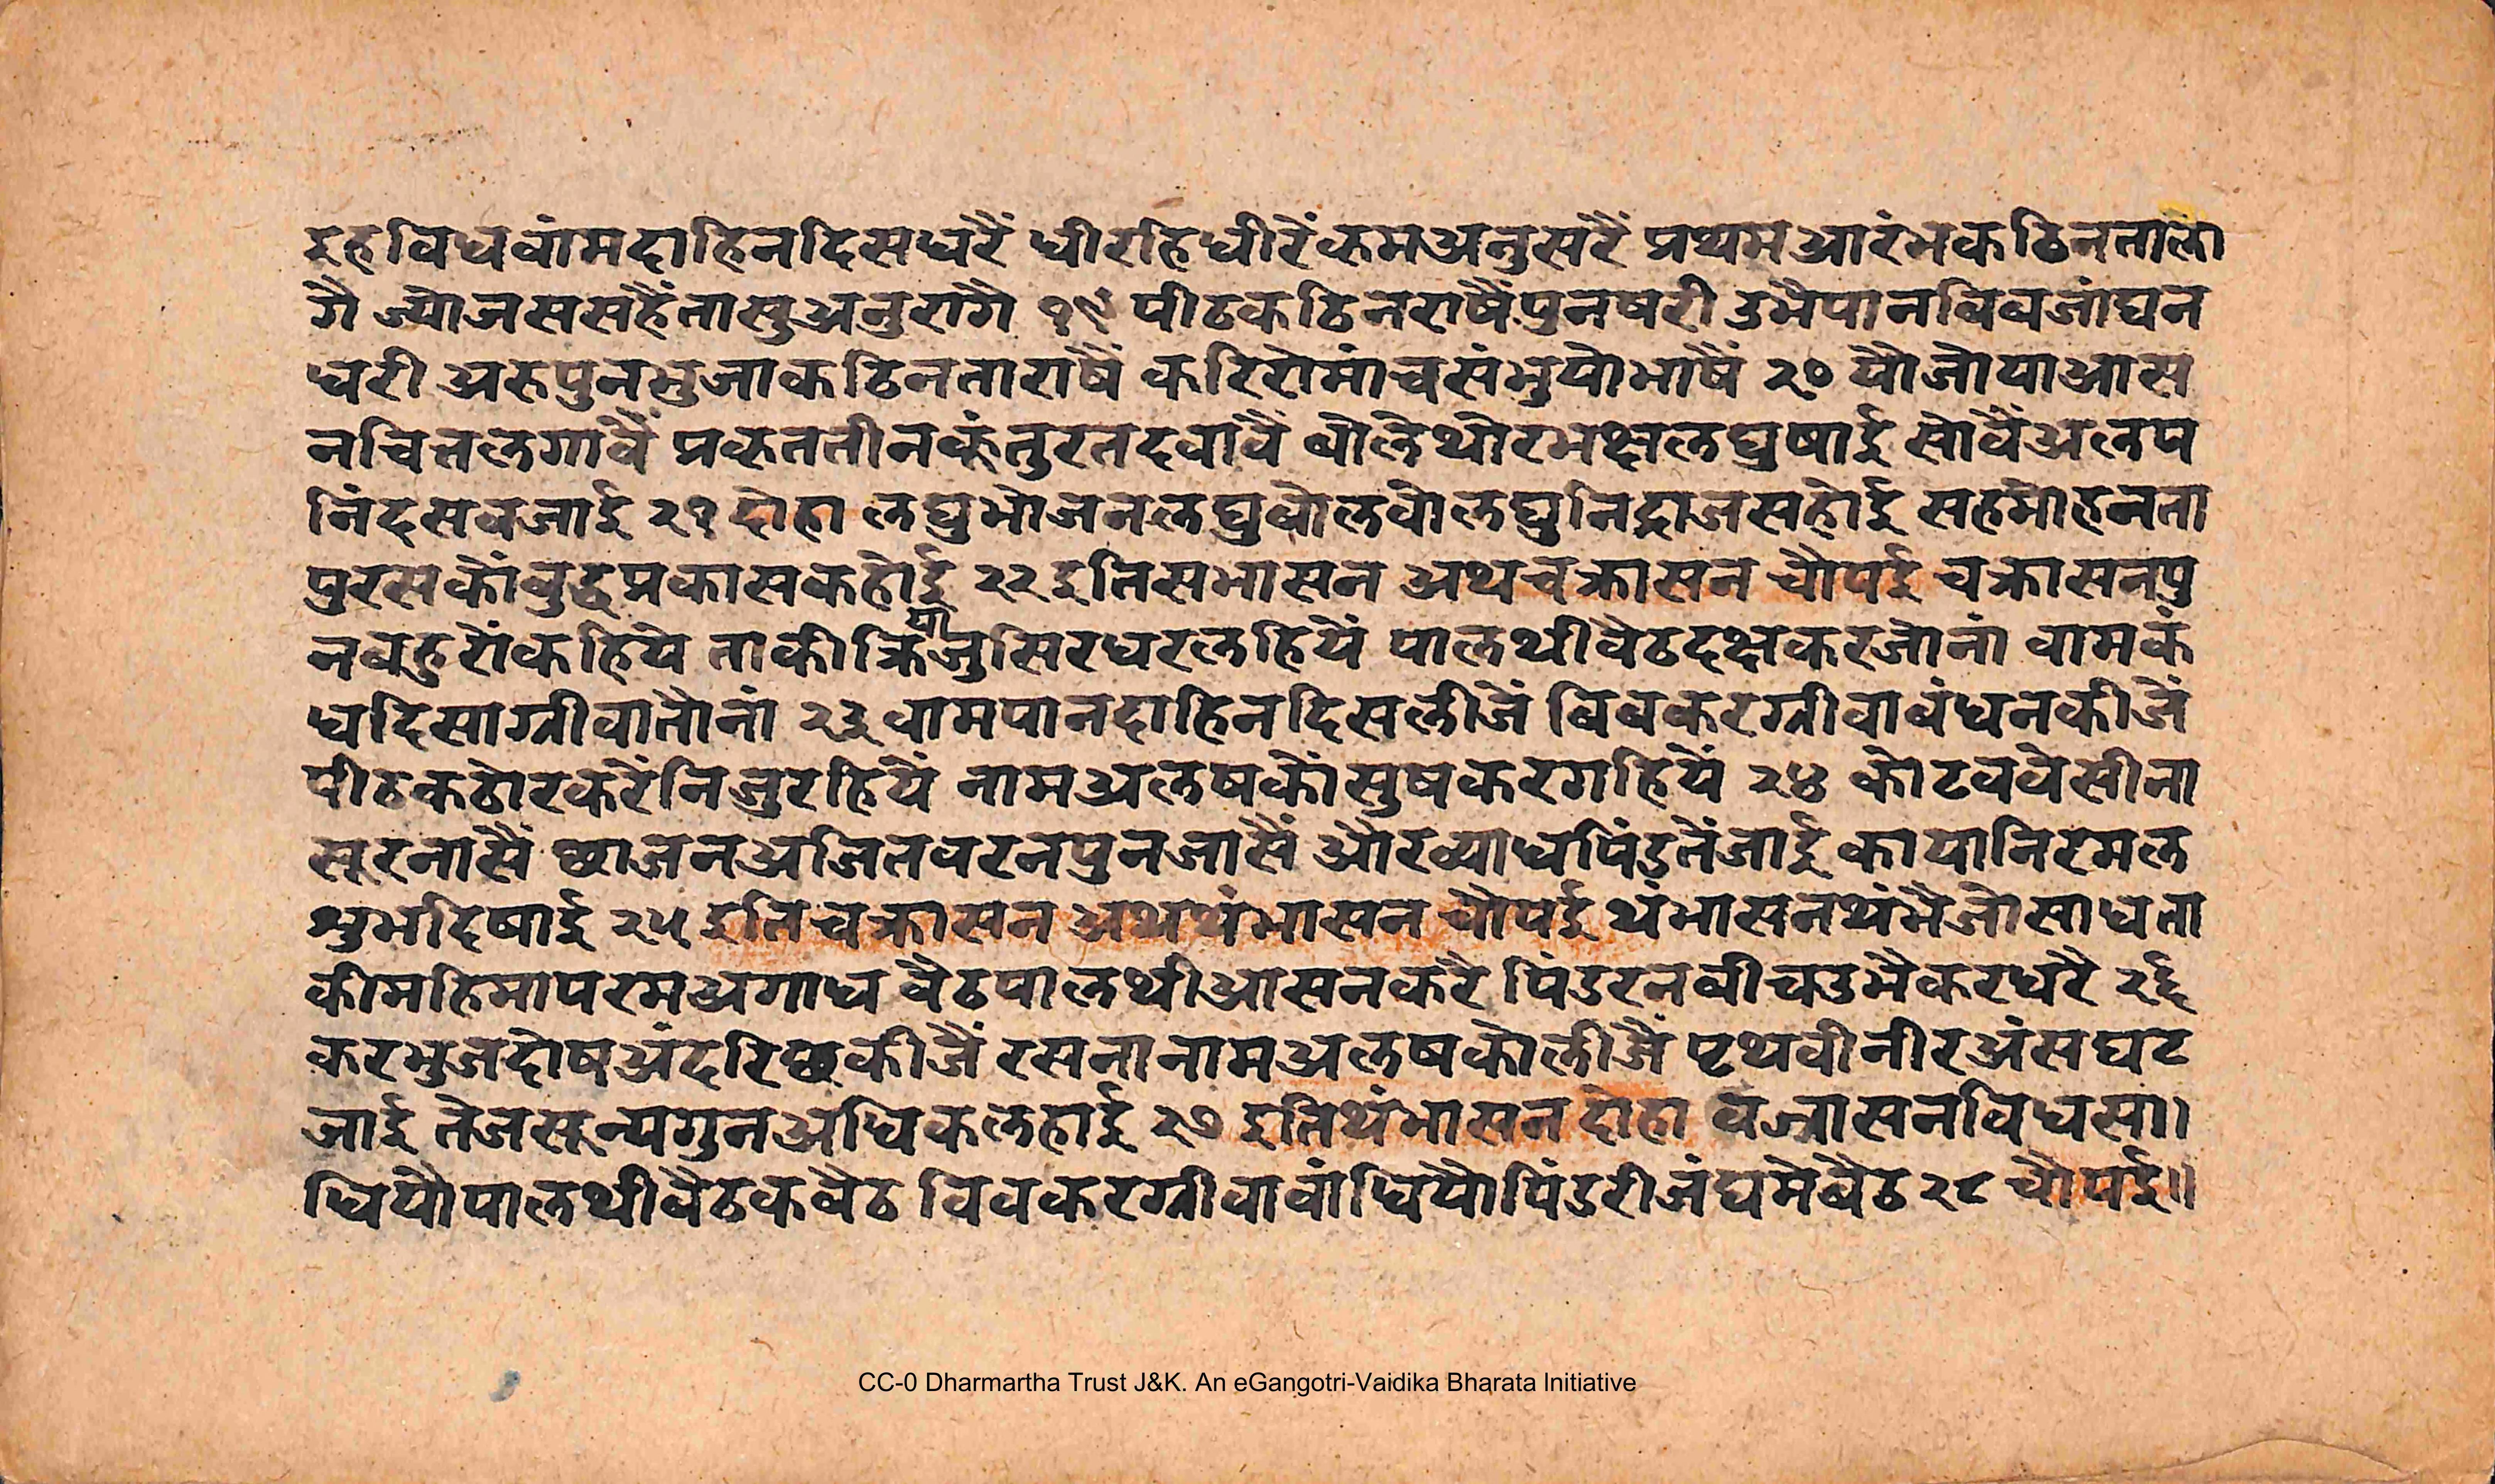 इह विध वांम दाहिन दिस धरैं धीरहि धीरें क्रम अनुसरैं प्रथम आरंभ कठिनता लो
गै ज्यो ज सस हैं तासु अनुरागै १९ पीठ कठिन राषैं पुन षरी उभै पान विव जांघन
धरी अरु पुन भुजा कठिनता राषैं करि रोमांच संभु यो भाषैं २० यौ जो या आस
न चित लगावैं प्रकृत तीन कूं तुरत दवावै बोले थोर भक्ष लघु षाई सोवैं अलप
निंद सव जाई २१ दोहा लघु भोजन लघु वोलवो लघु निद्रा जस होई सहमोहन ता
पुरस कौं बुद्ध प्रकासक होई २२ इति सभासन अथ चक्रासन चौपई चक्रासन पु
न वहुरों कहिये ताकी क्रिया जु सिर धर लहियें पालथी वैठ दक्ष कर जोनां वाम कं
ध दिसा ग्रीवा तौनां २३ वाम पान दाहिन दिस लीजें विव कर ग्रीवा वंधन कीजें
पीठ कठोर करें निजु रहियें नाम अलष कौ सुष कर गहियें २४ कोट ववेसी ना
सूर नासैं छाजन अजित वरन पुन जासैं और व्याध पिंड तें जाई काया निरमल
शुभ दिषाई २५ इति चक्रासन अथ थंभासन चौपई थंभासन थंभै जो साध ता
की महिमा परम अगाध वैठ पालथी आसन करै पिंडरन वीच उभै कर धरै २६
कर भुज दोष अंदरिछ कीजैं रसना नाम अलष को लीजैं पृथवी नीर अंस घट
जाई तेज सून्य गुन अधिक लहाई २७ इति थंभासन दोहा वज्रासन विध सा।
धियौ पालथी वैठक वैठ विव कर ग्रीवा वांधियौ पिंडरी जंघ मे वैठ २८ चौपई॥
CC-0 Dharmartha Trust J&K. An eGangotri-Vaidika Bharata Initiative